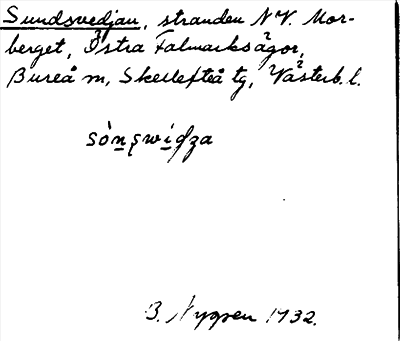 Sundsvedjan, stranden N.V. Mor-
berget, Östra Falmarksågor,
Bureå m, Skellefteå tg, Västerb. l.
sònșwiḍza
B. Nygren 1932.